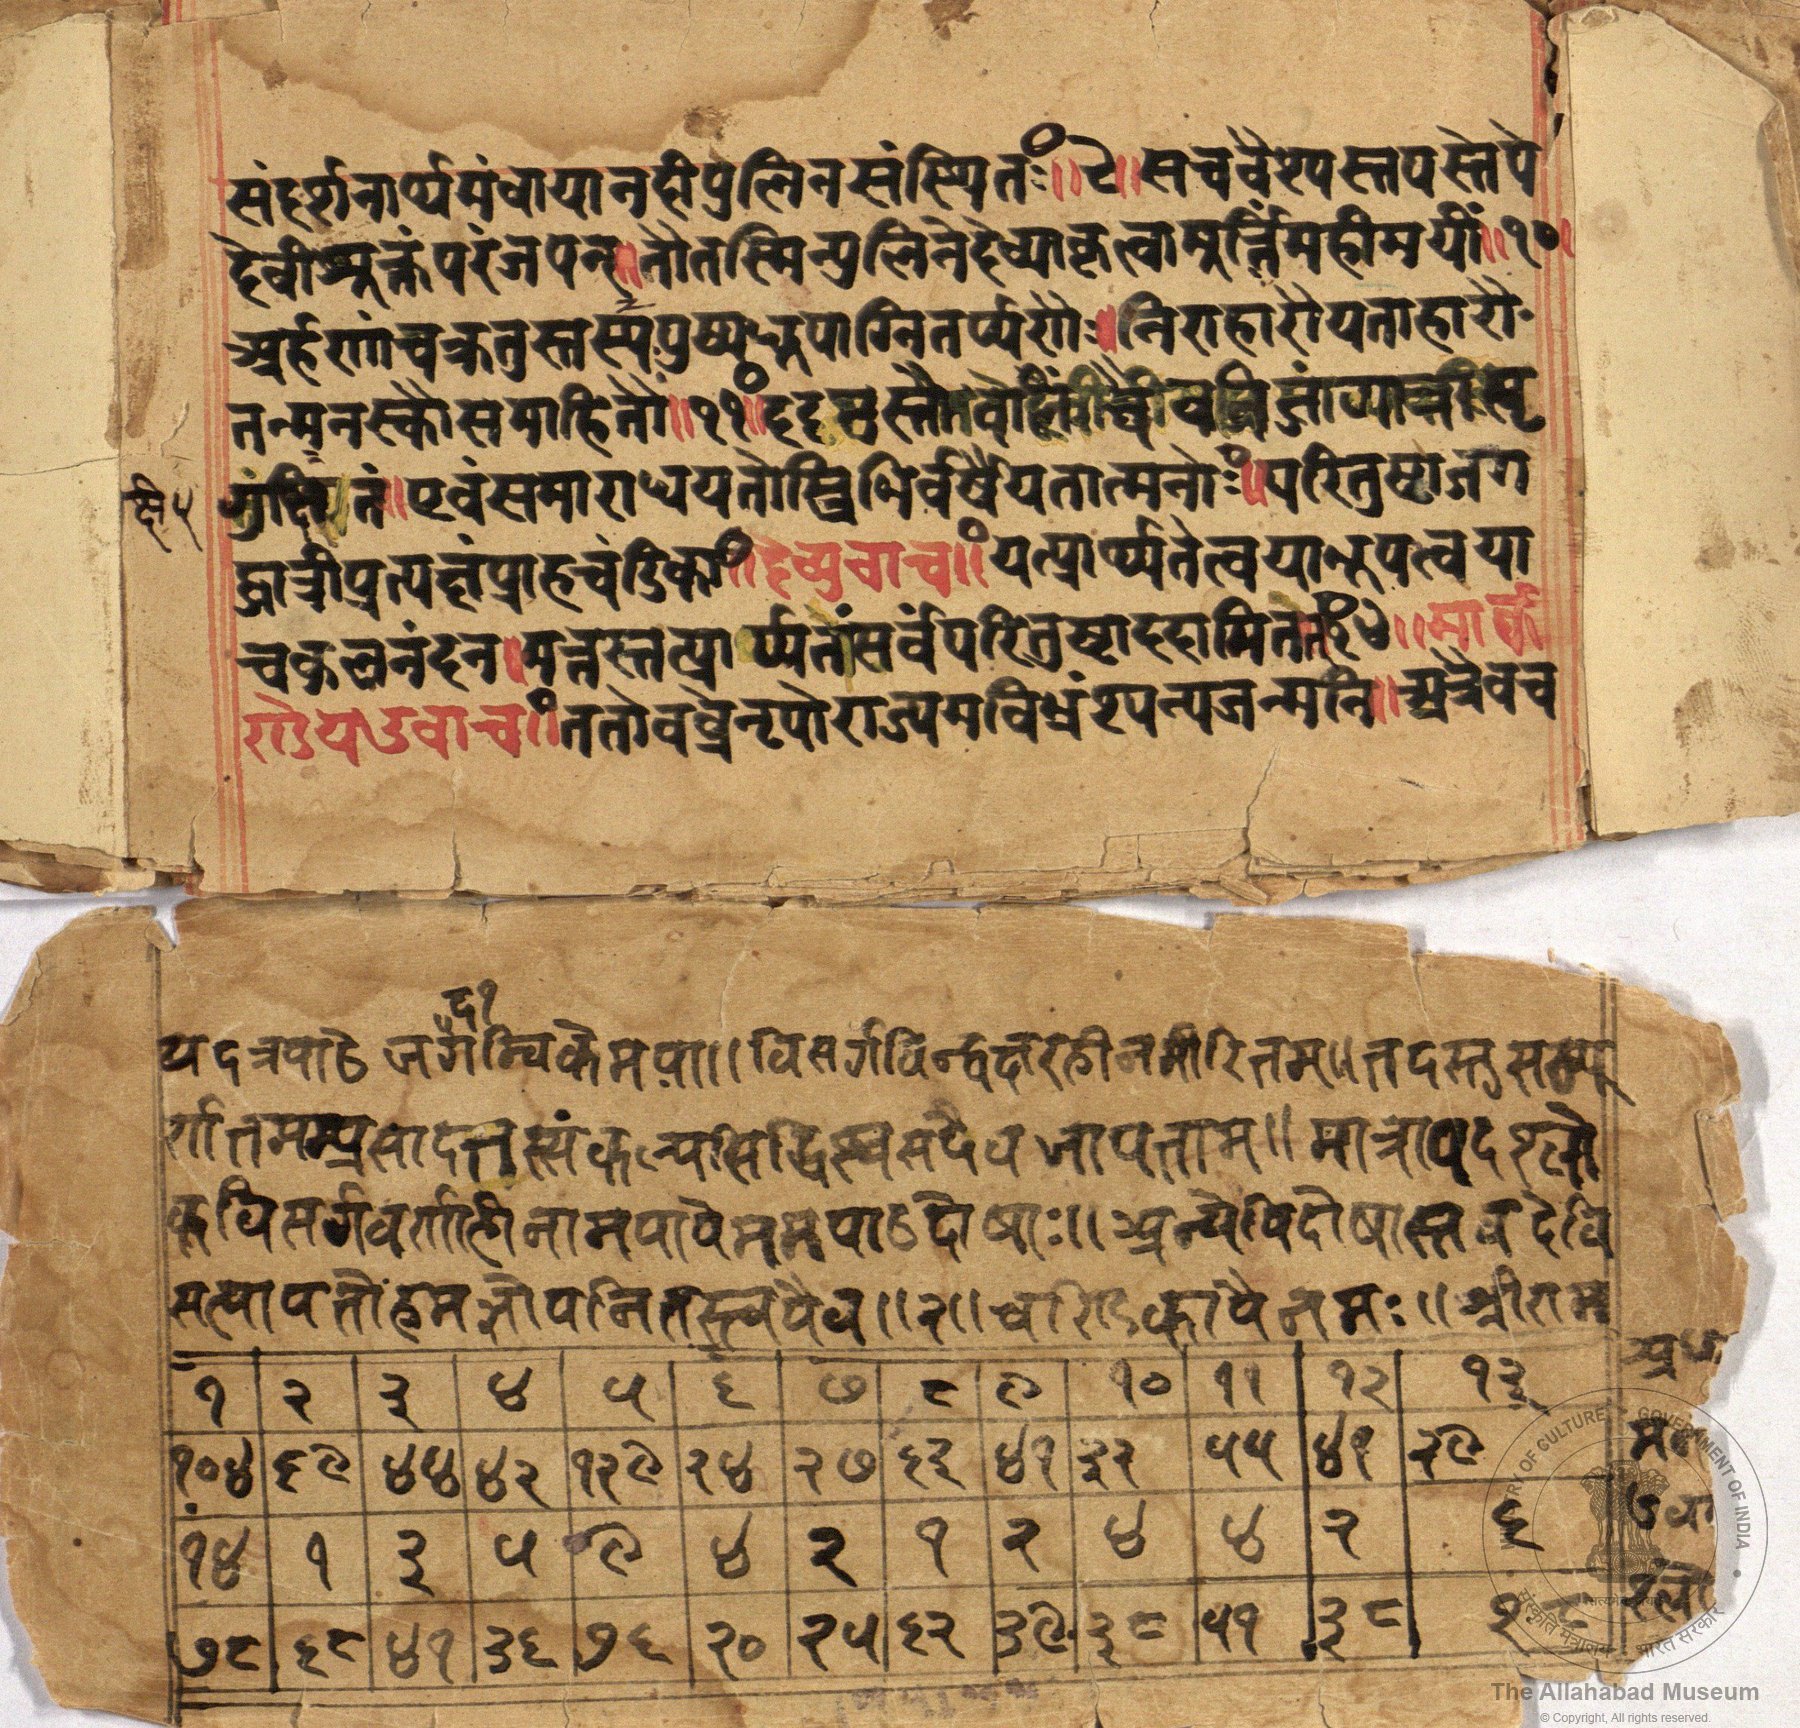 संदर्शनार्थमंबायानदीपुलिनसंस्थितः॥९॥सचवैश्यस्तपस्तेपे
देवीसूक्तंपरंजपन्॥तौतस्मिन्पुलिनेदेव्याकृत्वामूर्त्तिंमहीमयीं॥१०॥
अर्हणांचक्रतुस्तस्यपुष्पधूपाग्नितर्प्पणैः॥निराहारौयताहारौ
तन्मनस्कौसमाहितौ॥११॥ददतुस्तौ
एवंसमाराधयतोस्त्रिभिर्वर्षैर्यतात्मनोः॥परितुष्टाजग
द्धात्रीप्रत्यक्षंप्राहचंडिका॥देव्युवाच॥यत्प्रार्थ्यतेत्वयाभूपत्वया
चकुलनंदन॥मत्तस्तत्प्रार्थ्यतांसर्वंपरितुष्टाददामितत्॥मार्कं
णडेयउवाच॥ततोवव्रेनृपोराज्यमविभ्रंश्यन्यजन्मनि॥अत्रैवच
यदत्रपाठे जगदम्बिकेमया॥विसर्गविन्द्वक्षरहीनमीरितम॥तदस्तुसम्पू
र्णंतमम्प्रसादतः सिद्धिश्चसदैवजायताम॥मात्रा
विसर्गवर्णहीनामपापेममपाठदोषाः॥अन्येपिदोषास्तवदेवि
॥२॥चण्डिकायैनमः॥श्रीराम
१ २ ३ ४ ५ ६ ७ ८ ९ १० ११ १२ १३ अध्या
१०४ ६९ ४४ ४२ १२९ २४ २७ ६३ ४१ ३२ ५५ ४१ २९
१४ १ ३ ५ ९ ४ २ १ २ ४ ४ २ ६ उवा
७८ ६८ ४१ ३६ ७६ २० २५ ६२ ३९ ३८ ५१ ३८ श्लो
MINISTRY OF CULTURE • GOVERNMENT OF INDIA
सत्यमेव जयते
संस्कृति मंत्रालय • भारत सरकार
The Allahabad Museum
© Copyright, All rights reserved.